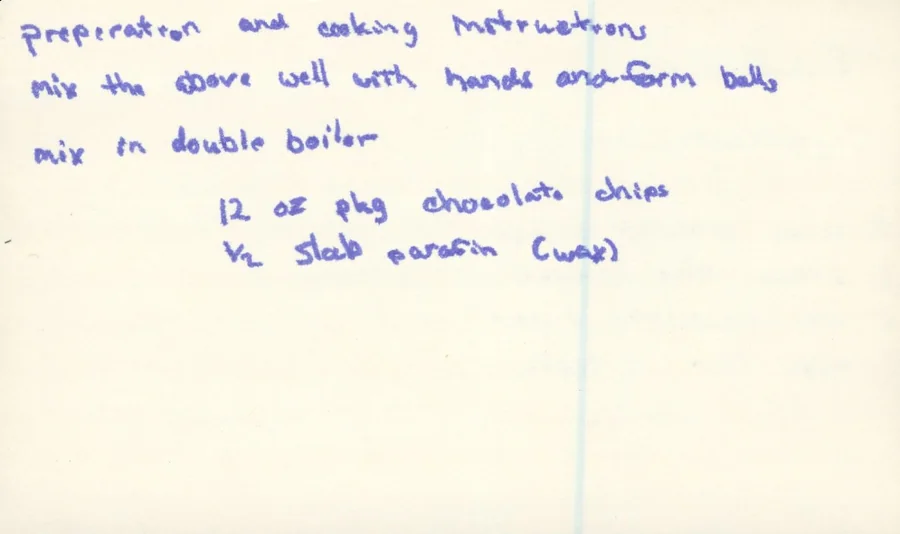 preperation and cooking instructions
mix the above well with hands and form balls
mix in double boiler
12 oz pkg chocolate chips
1/2 slab parafin (wax)